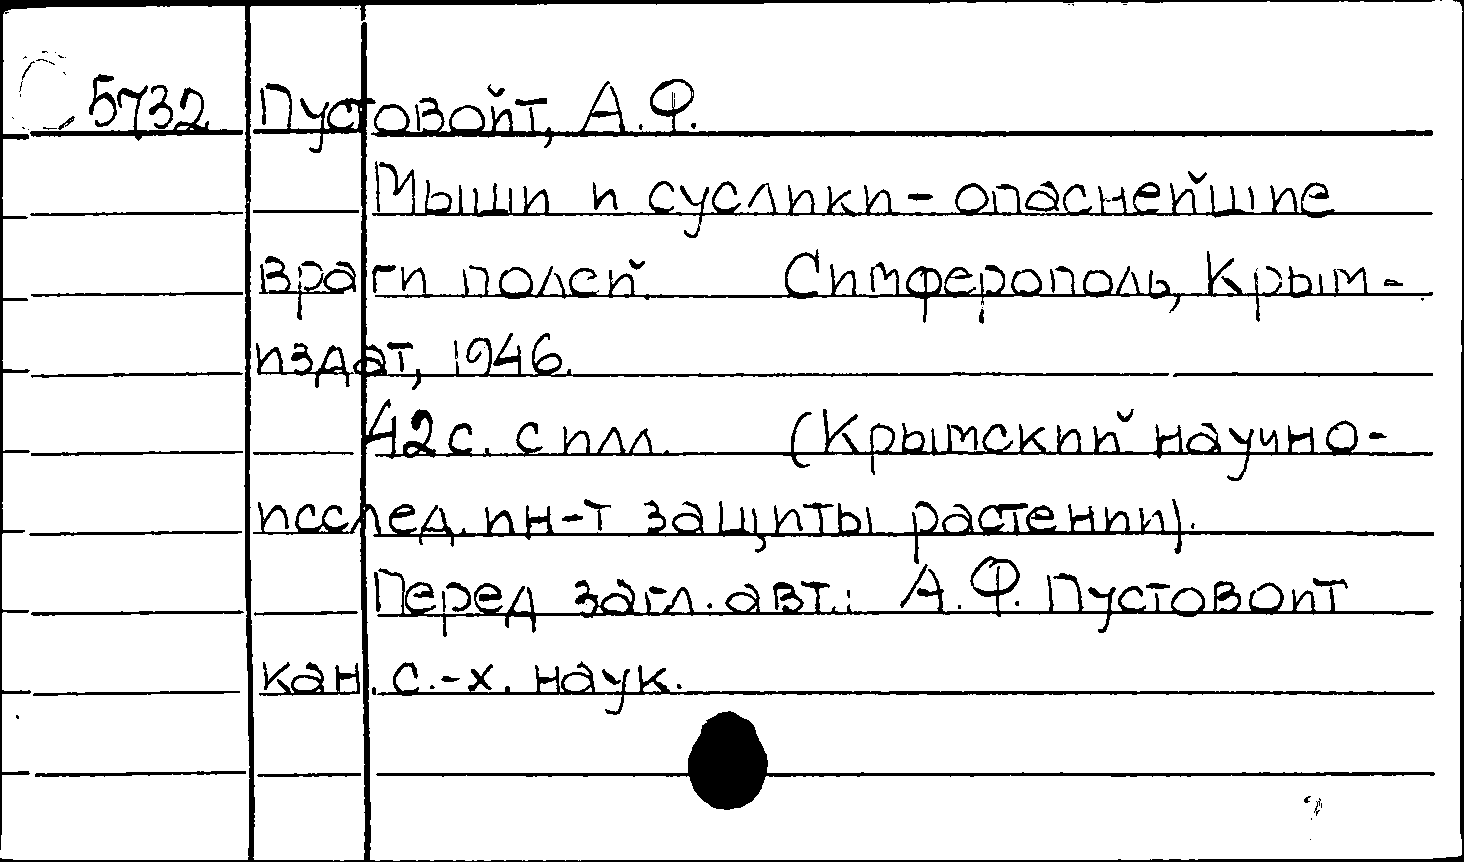 5732 Пустовойт, А.Ф.
Мыши и суслики - опаснейшие
враги полей. Симферополь, Крым-
издат, 1946.
42 с. с илл. (Крымский научно-
исслед. ин-т защиты растении).
Перед загл. авт.: А.Ф. Пустовоит
кан. с.-х. наук.